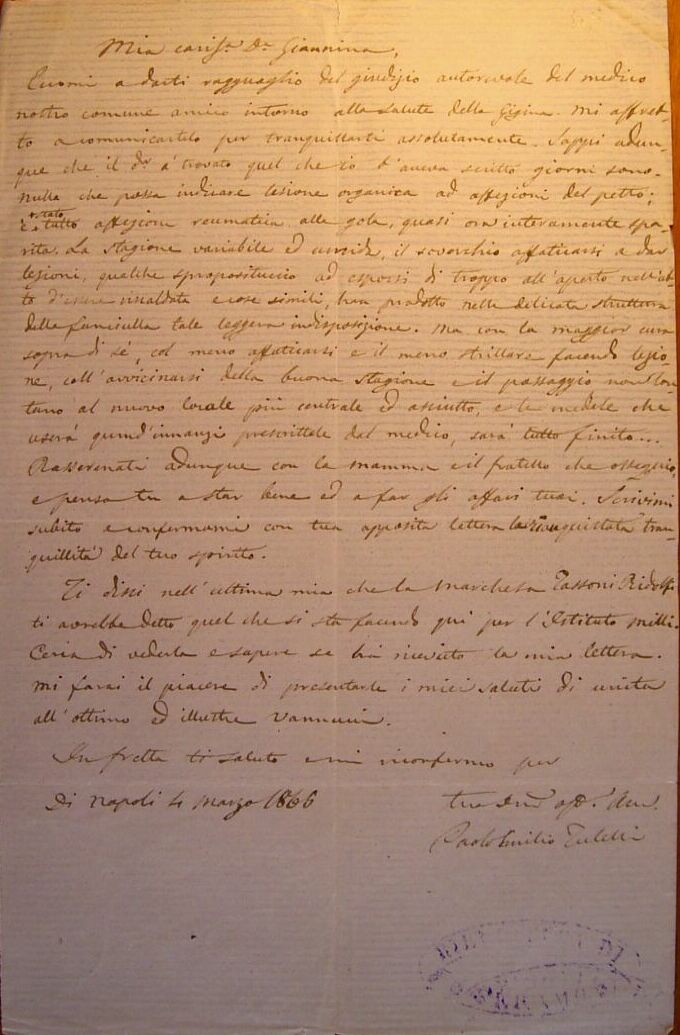 Mia cariss.ma D.a Giannina,
Eccomi a darti ragguaglio del giudizio autorevole del medico
nostro comune amico intorno alla salute della Gigina. Mi affret-
to a comunicartelo per tranquillarti assolutamente. Sappi adun-
que che il dr. à trovato quel che io t'aveva scritto giorni sono:
nulla che possa indicare lesione organica ad affezioni del petto;
è stato tutto affezione reumatica alla gola, quasi ora interamente spa-
rita. La stagione variabile ed umida, il soverchio affaticarsi a dar
lezioni, qualche sproposituccio ad esporsi di troppo all'aperto nell'at-
to d'essere riscaldata e cose simili, han prodotto nella delicata struttura
della fanciulla tale leggera indisposizione. Ma con la maggior cura
sopra di sé, col meno affaticarsi e il meno strillare facendo lezio-
ne, coll'avvicinarsi della buona stagione e il passaggio non lon-
tano al nuovo locale più centrale ed asciutto, e le medele che
userà quind'innanzi prescrittele dal medico, sarà tutto finito...
Rasserenati adunque con la mamma e il fratello che ossequio,
e pensa tu a star bene ed a far gli affari tuoi. Scrivimi
subito e confermami con tua apposita lettera la riacquistata tran-
quillità del tuo spirito.
Ti dissi nell'ultima mia che la marchesa Tassoni Ridolfi
ti avrebbe detto quel che si sta facendo qui per l'Istituto Milli.
Cerca di vederla e sapere se ha ricevuto la mia lettera.
Mi farai il piacere di presentarle i miei saluti di unita
all'ottimo ed illustre Vannucci.
In fretta ti saluto e mi riconfermo per
Di Napoli 4 marzo 1866
tuo
Paolo Emilio Tulelli